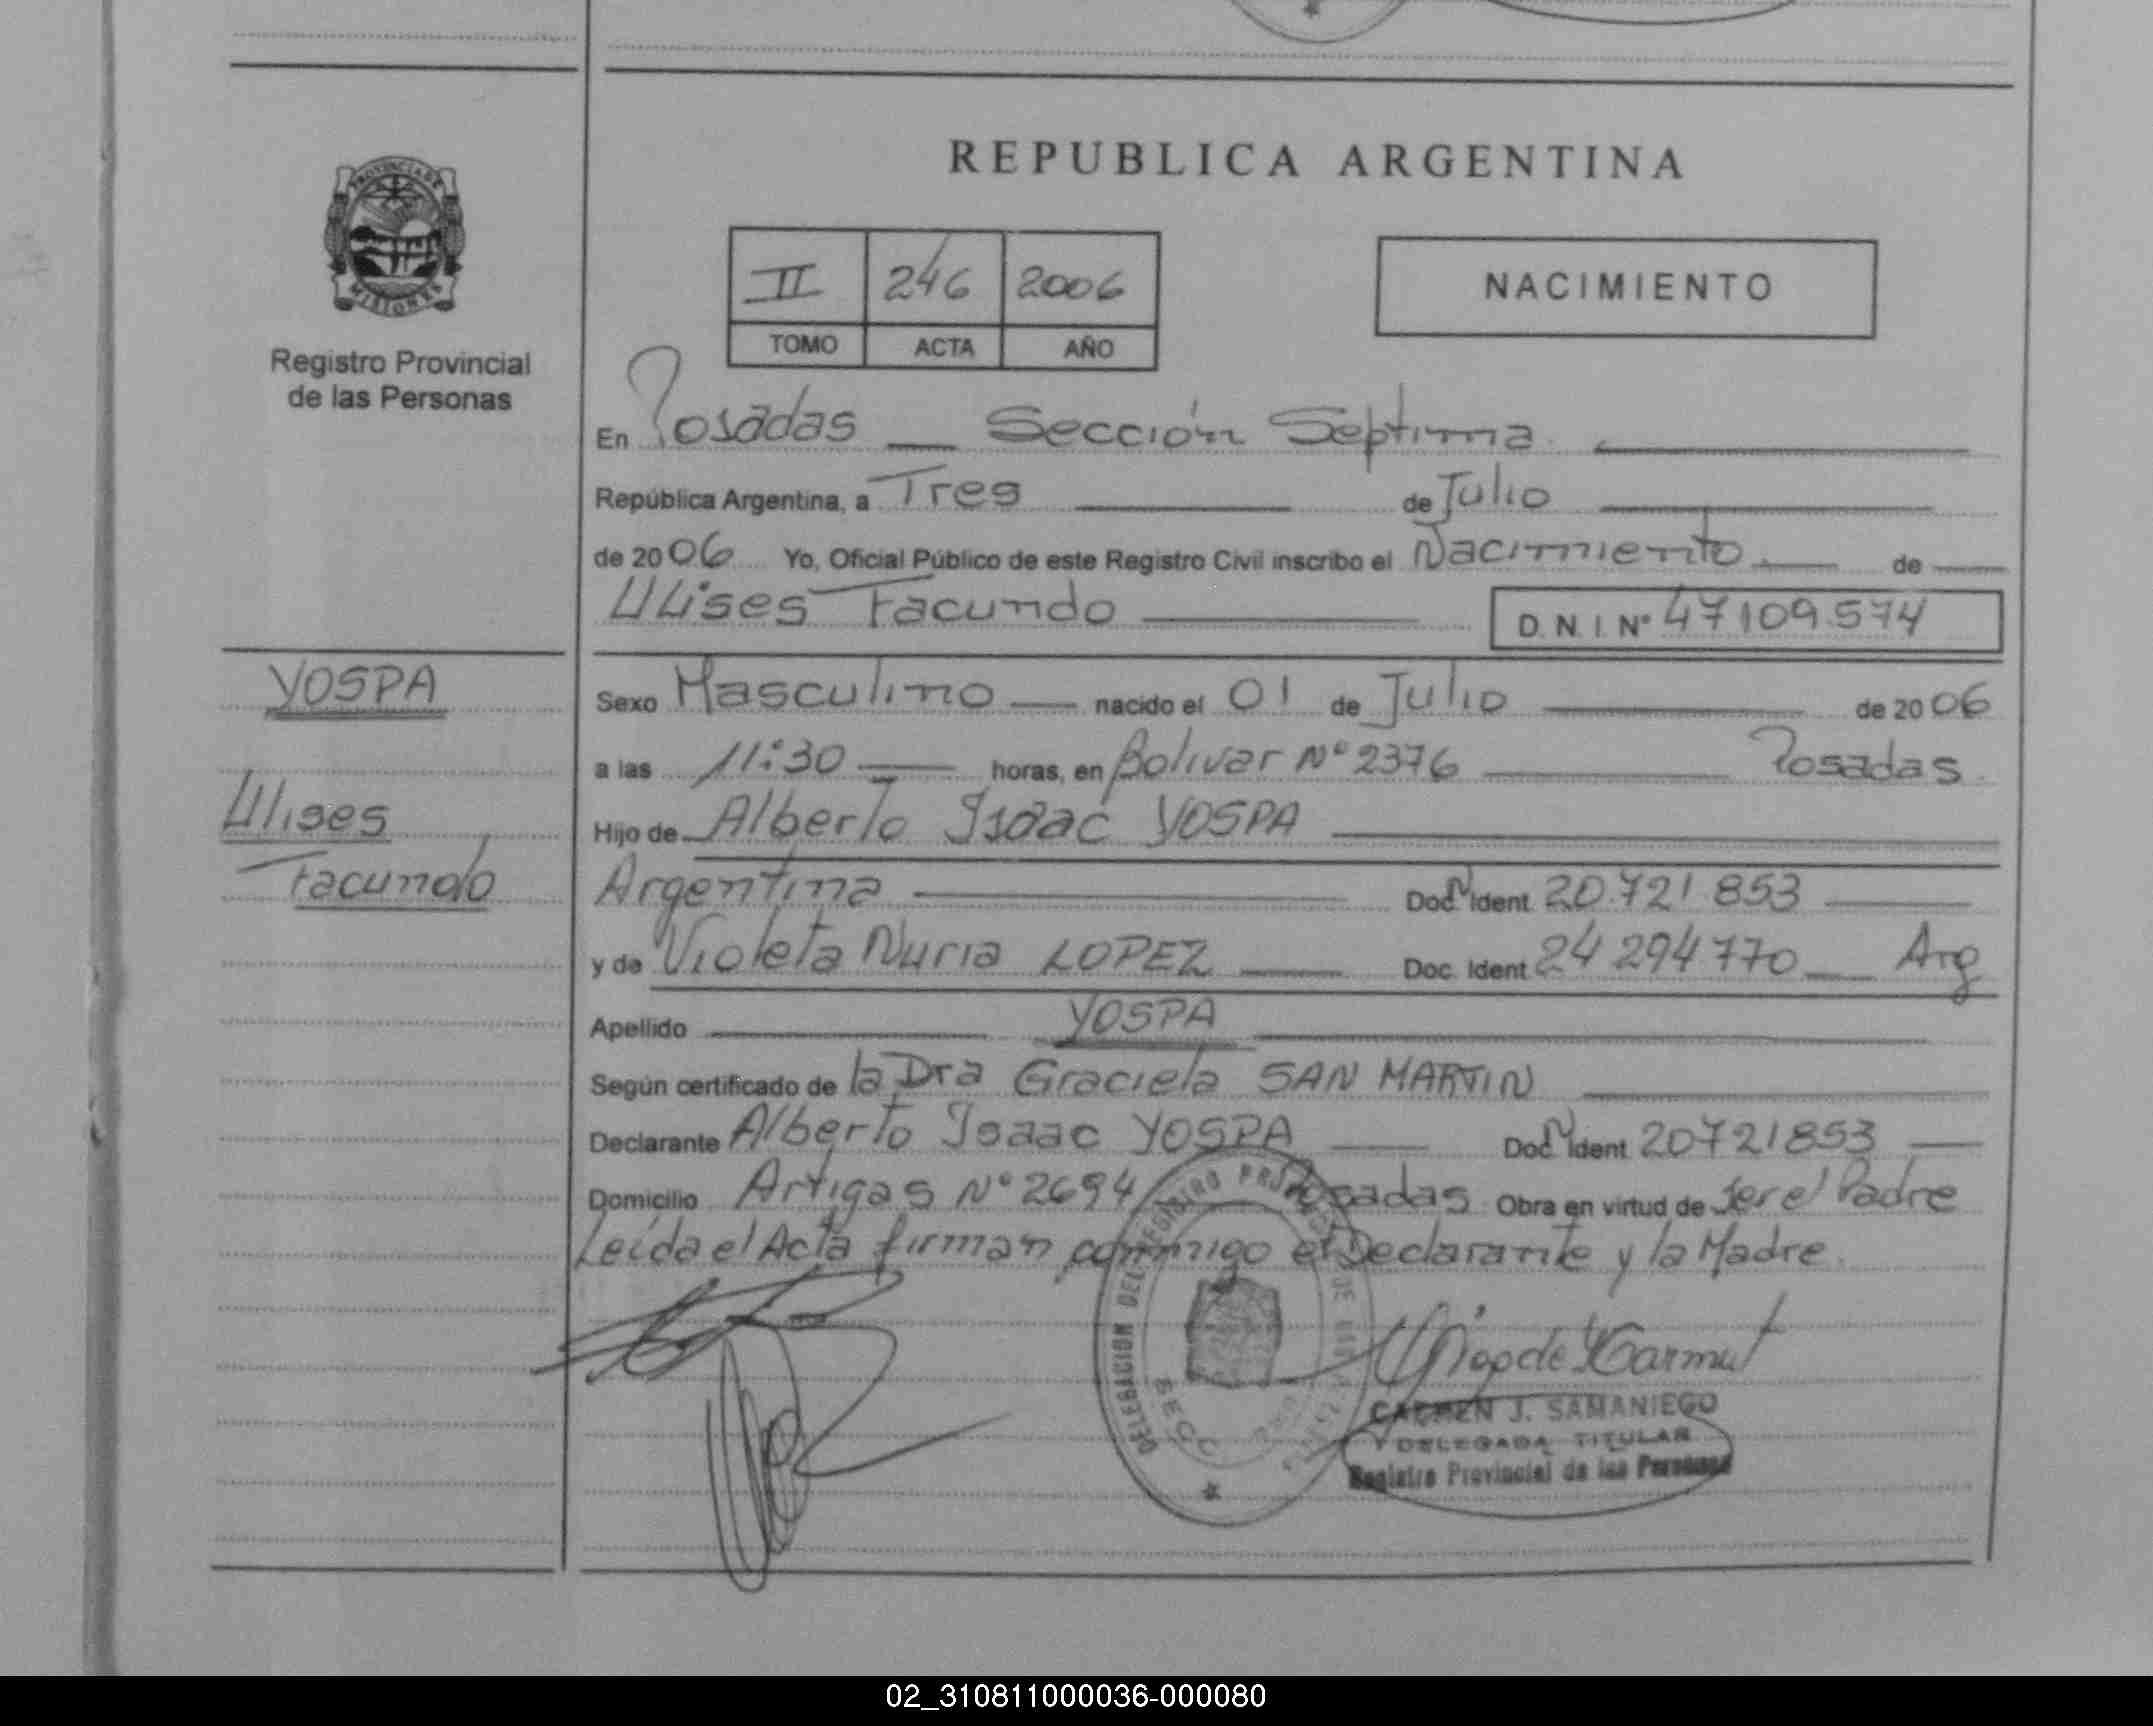 REPUBLICA ARGENTINA
PROVINCIA DE
MISIONES
Registro Provincial
de las Personas
II 246 2006
TOMO ACTA AÑO
NACIMIENTO
En Posadas — Sección Septima
República Argentina, a Tres de Julio
de 2006 Yo, Oficial Público de este Registro Civil inscribo el Nacimiento de
Ulises Facundo D.N.I. Nº 47109574
YOSPA
Ulises
Facundo
Sexo Masculino nacido el 01 de Julio de 2006
a las 11:30 horas, en Bolivar Nº 2376 Posadas
Hijo de Alberto Isaac YOSPA
Argentina Doc Ident 20.721.853
y de Violeta Nuria LOPEZ Doc. Ident 24 294 770 Arg
Apellido YOSPA
Según certificado de la Dra Graciela SAN MARTIN
Declarante Alberto Isaac YOSPA Doc Ident 20721853
Domicilio Artigas Nº 2694 Posadas Obra en virtud de ser el Padre
Leída el Acta firman conmigo el Declarante y la Madre.
DELEGACION DEL REGISTRO
SECC
CARMEN J. SAMANIEGO
DELEGADA TITULAR
Registro Provincial de las Personas
02_310811000036-000080